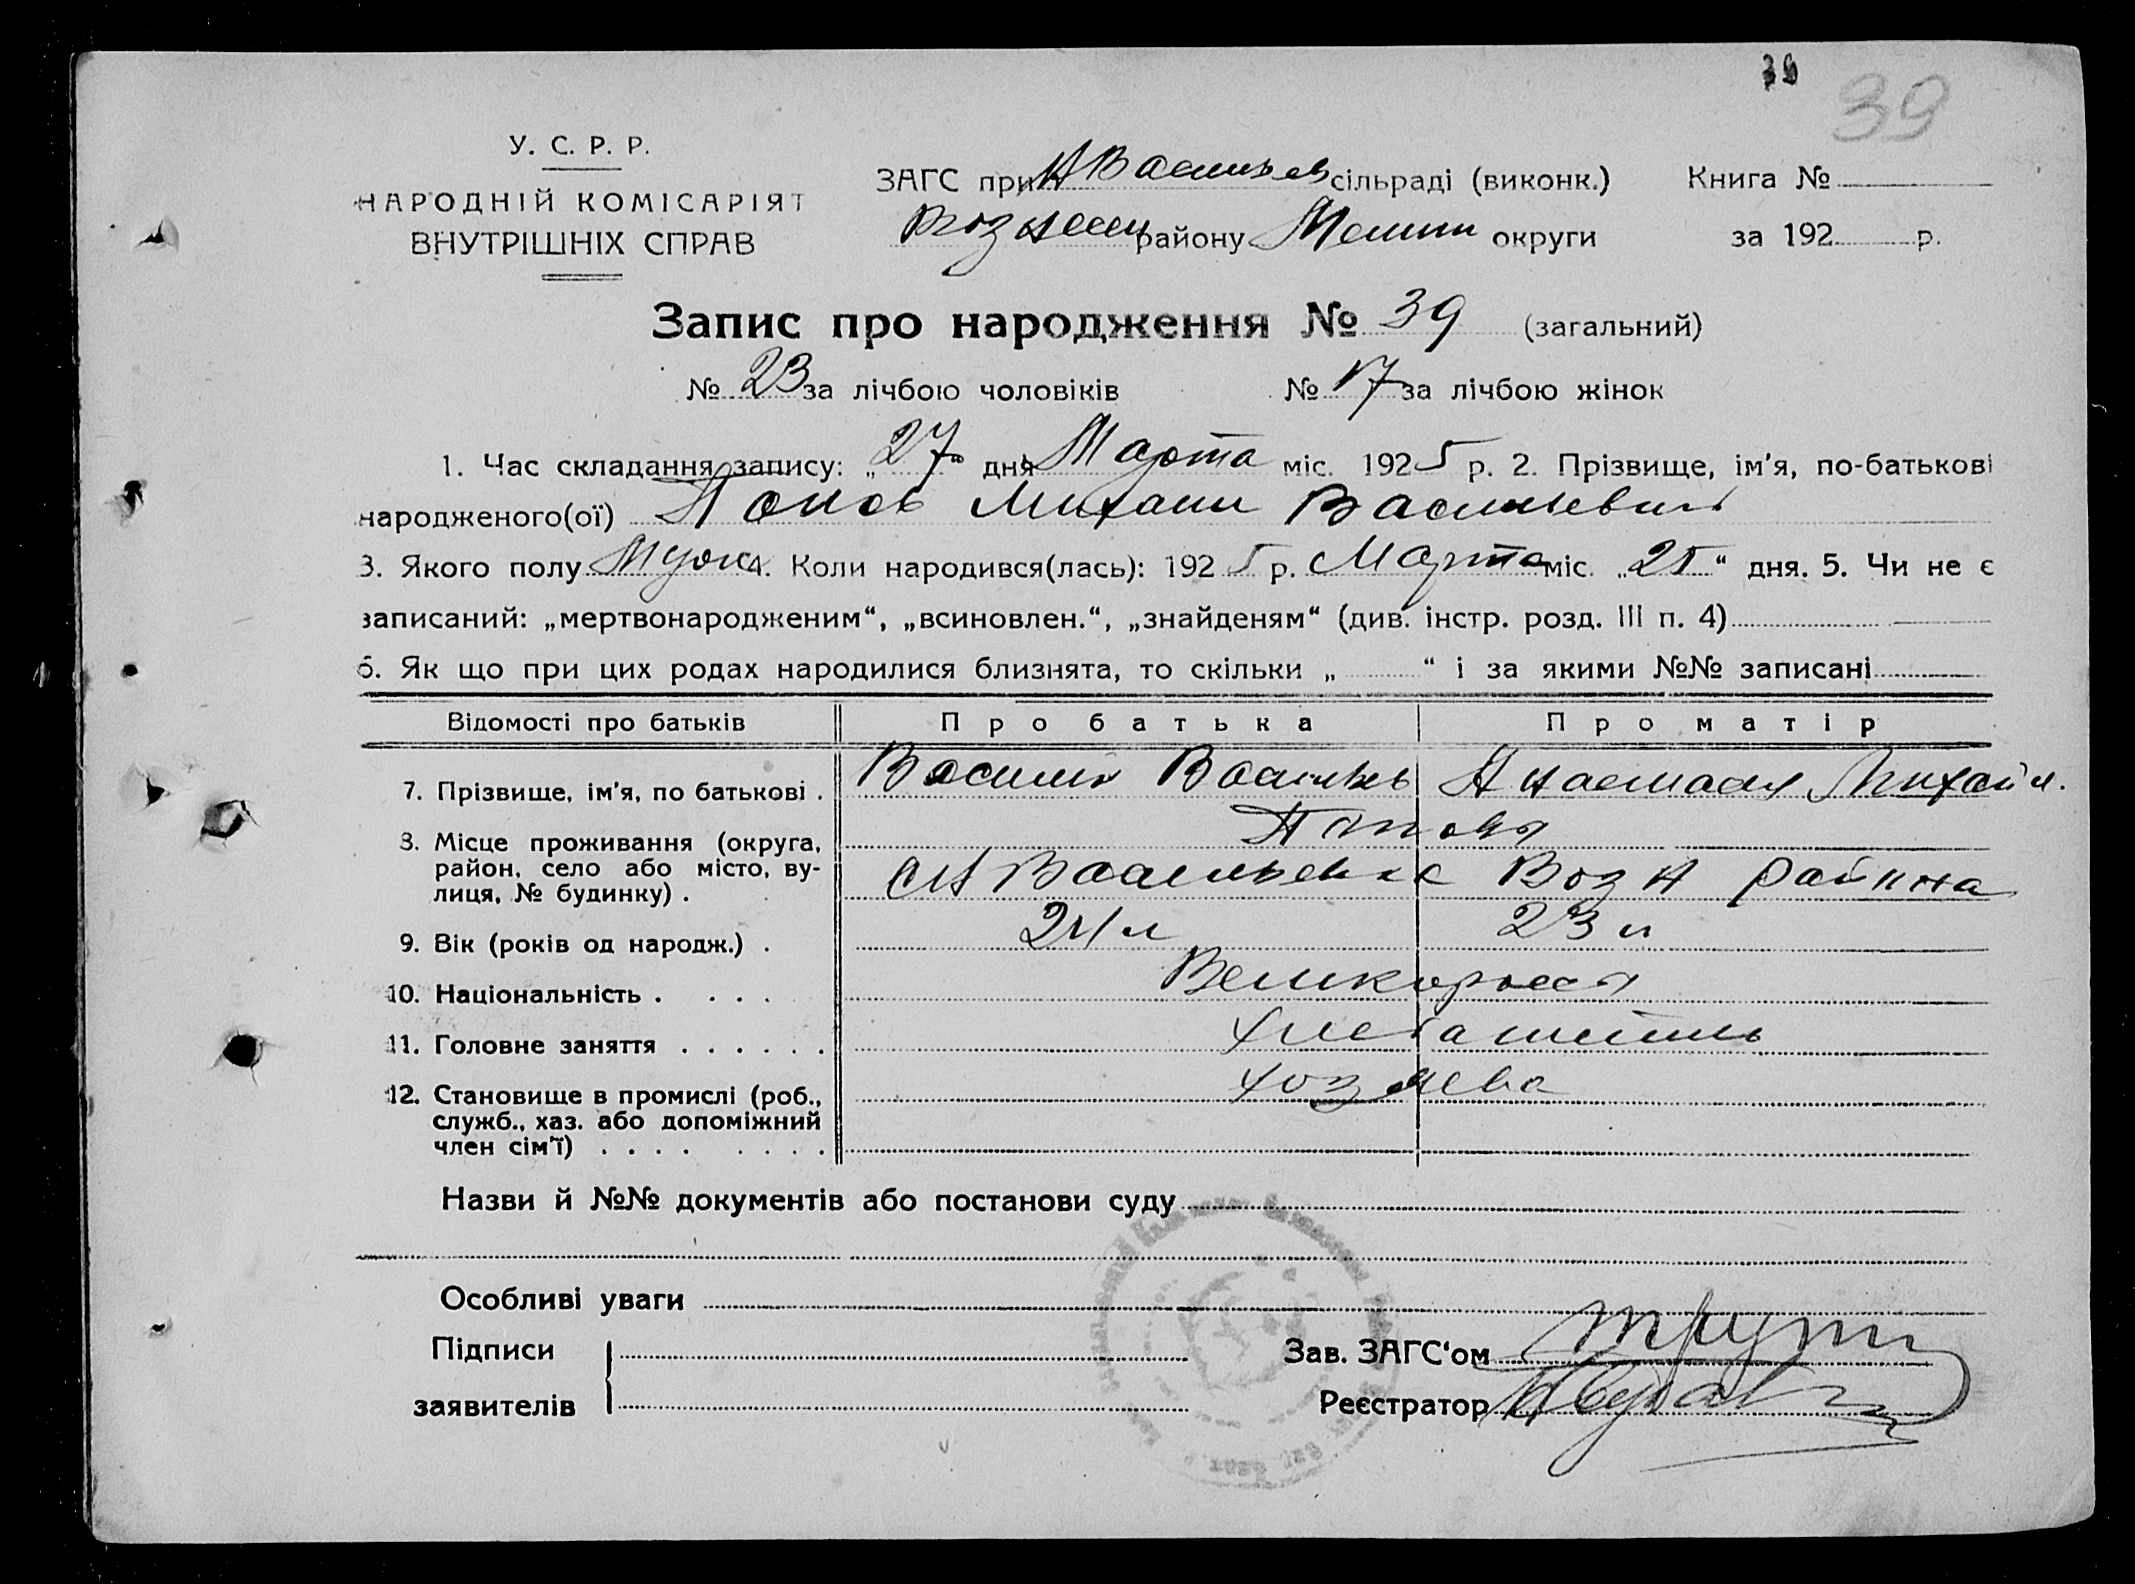 39
У. С. Р. Р.
НАРОДНІЙ КОМІСАРІЯТ
ВНУТРІШНІХ СПРАВ
ЗАГС при Н Васильев сільраді (виконк.) Книга №
Вознесен району Мелит округи за 192 р.
Запис про народження № 39 (загальний)
№ 23 за лічбою чоловіків № 17 за лічбою жінок
1. Час складання запису: „27“ дня Марта міс. 1925 р. 2. Прізвище, ім'я, по-батькові
народженого(ої) Попов Михаил Васильевич
3. Якого полу Муж 4. Коли народився(лась): 1925 р. Марта міс. „25“ дня. 5. Чи не є
записаний: „мертвонародженим“, „всиновлен.“, „знайденям“ (див. інстр. розд. III п. 4)
6. Як що при цих родах народилися близнята, то скільки „ “ і за якими №№ записані
Відомості про батьків Про батька Про матір
7. Прізвище, ім'я, по батькові . Василий Василье Анастасия Михайл.
Поповы
8. Місце проживання (округа, район, село або місто, вулиця, № будинку) . с Н Васильевке Возн района
9. Вік (років од народж.) . 24 л 23 л
10. Національність . . . . Великороссы
11. Головне заняття . . . . . . Хлебопашець
12. Становище в промислі (роб., служб., хаз. або допоміжний член сім'ї) . . . . . . . . хозяева
Назви й №№ документів або постанови суду
Особливі уваги
Підписи
заявителів
Зав. ЗАГС‘ом
Реєстратор